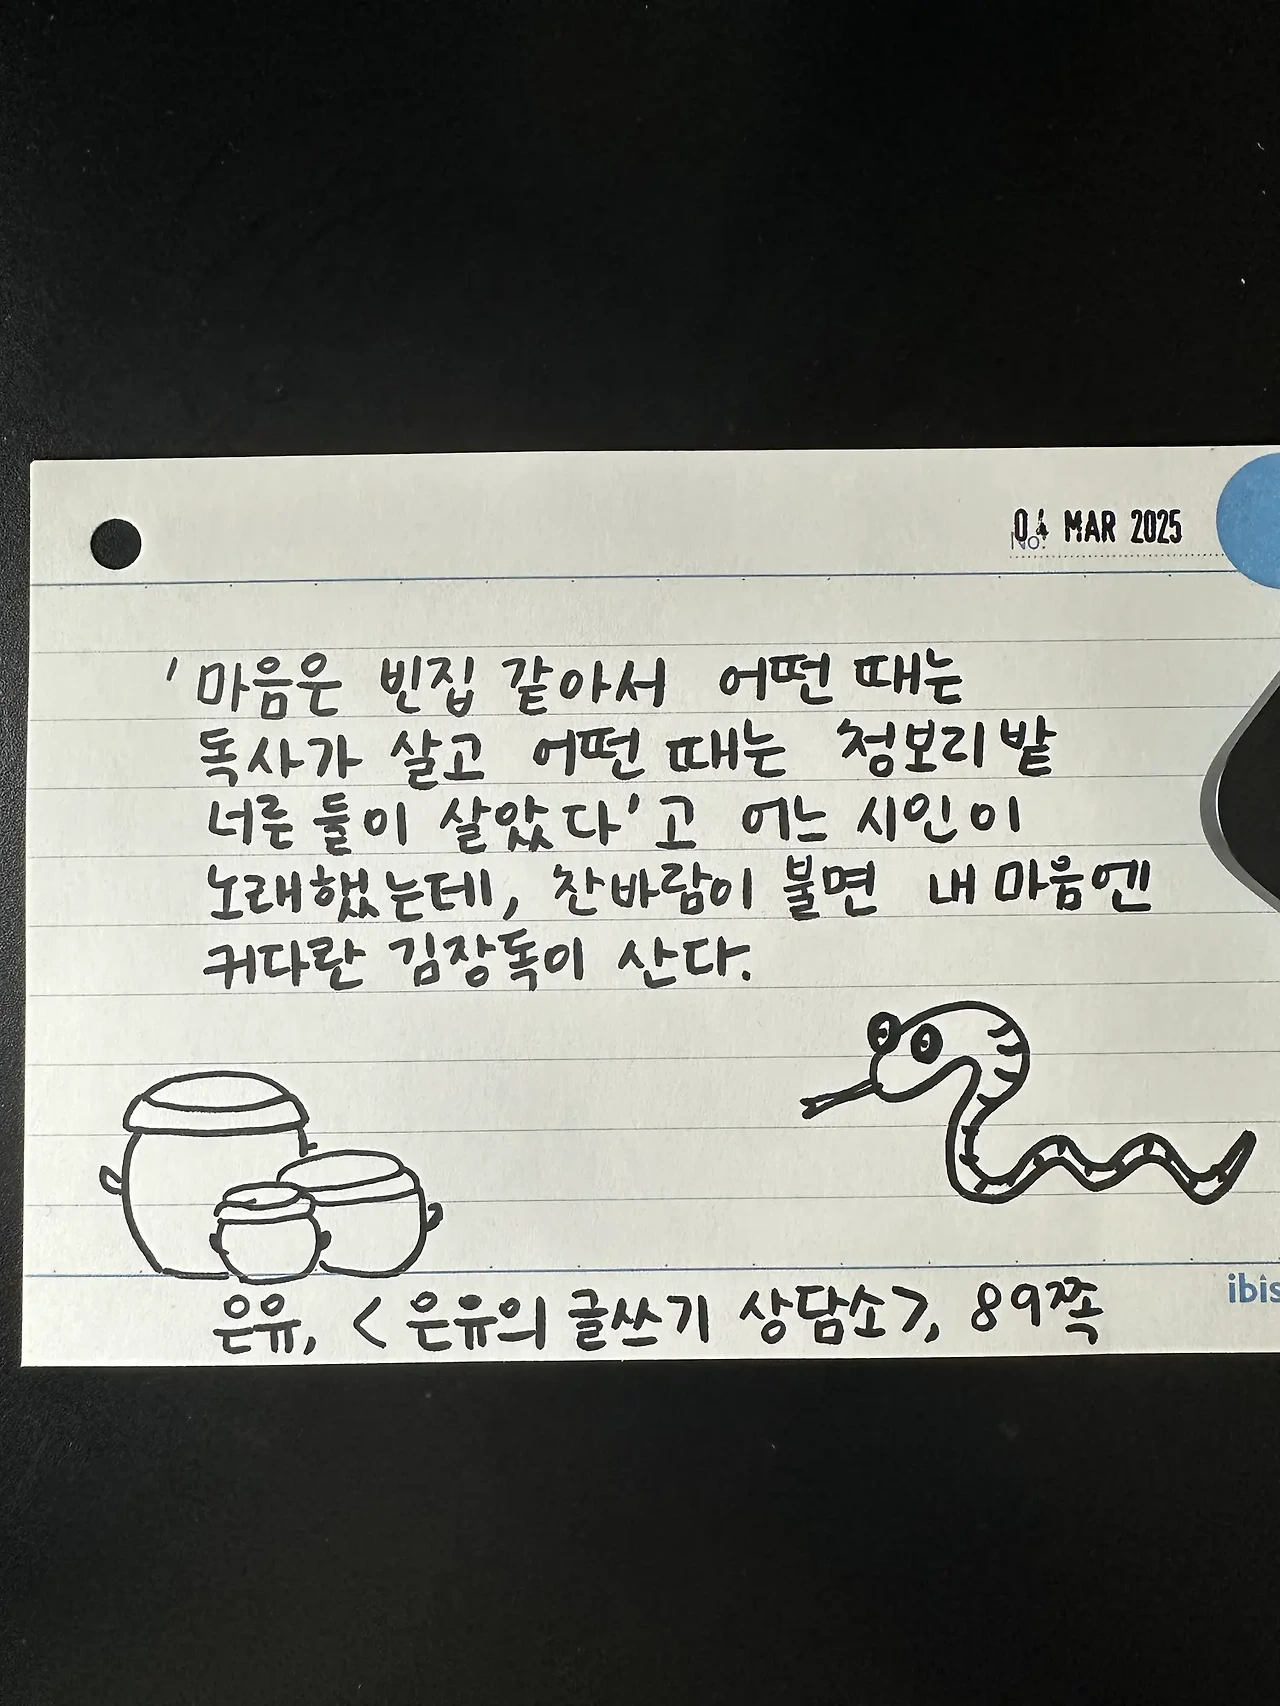 04 MAR 2025
No.
'마음은 빈집 같아서 어떤 때는
독사가 살고 어떤 때는 청보리밭
너른 둘이 살았다'고 어느 시인이
노래했는데, 찬바람이 불면 내 마음엔
커다란 김장독이 산다.
ibis
은유, <은유의 글쓰기 상담소>, 89쪽